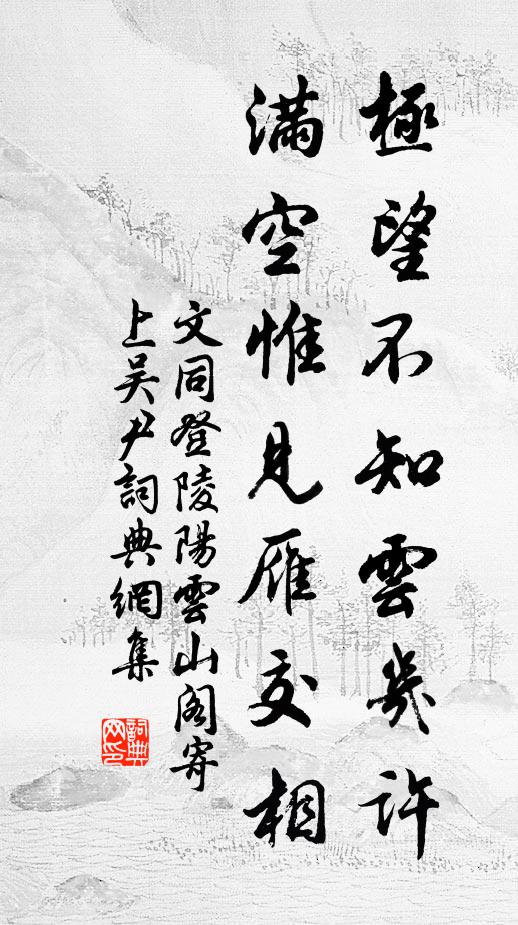 極望不知雲幾許
滿空惟見雁交相
文同登陵陽雲山閣寄
上吴尹詞典網集
詞典
网印